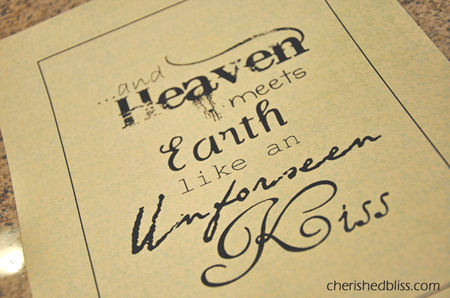 ...and
Heaven
meets
Earth
like an
Unforseen
Kiss
cherishedbliss.com